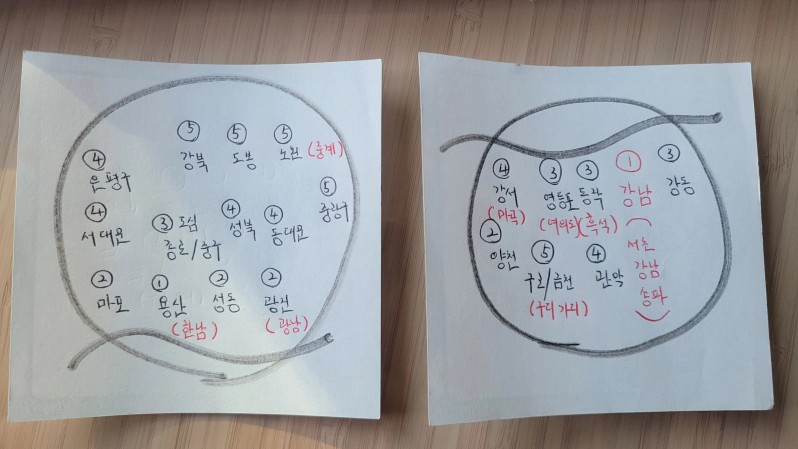 ⑤ ⑤ ⑤
강북 도봉 노원 (중계)
④
은평구
⑤
중랑구
④ ③ 도심 ④ ④
서대문 종로/중구 성북 동대문
② ① ② ②
마포 용산 성동 광진
(한남) (광남)
④ ③ ③ ① ③
강서 영등포 동작 강남 강동
(마곡) (여의도) (흑석)
② 
양천
서초
강남
송파
⑤ ④
구로/금천 관악
(구디 가디)